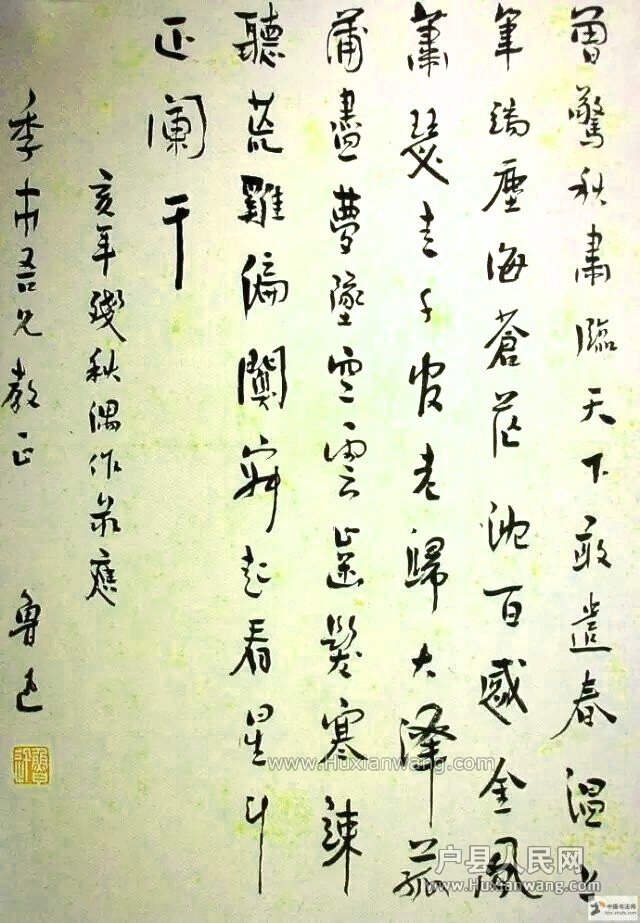 曾驚秋肅臨天下敢遣春溫上
筆端塵海蒼茫沈百感金風
蕭瑟走千官老歸大澤菰
蒲盡夢墜空雲齒髮寒竦
聽荒雞偏闃寂起看星斗
正闌干
亥年殘秋偶作錄應
季市吾兄教正
魯迅
www.Huxianwang.com
户县人民网
www.Huxianwang.com
中国书法网